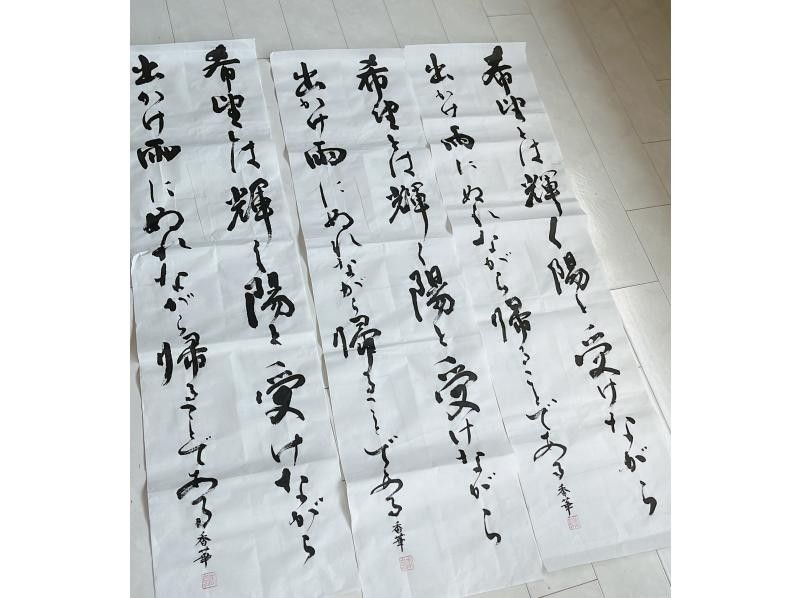 希望とは輝く陽を受けながら
出かけ雨にぬれながら帰ることである 香華
希望とは輝く陽を受けながら
出かけ雨にぬれながら帰ることである 香華
希望とは輝く陽を受けながら
出かけ雨にぬれながら帰ることである 香華